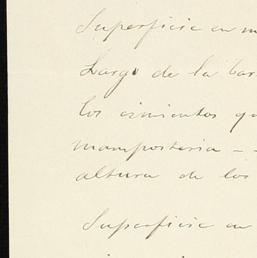 Superficie en m
Largo de la bar
los cimientos qu
mamposteria - -
altura de los
Superficie en